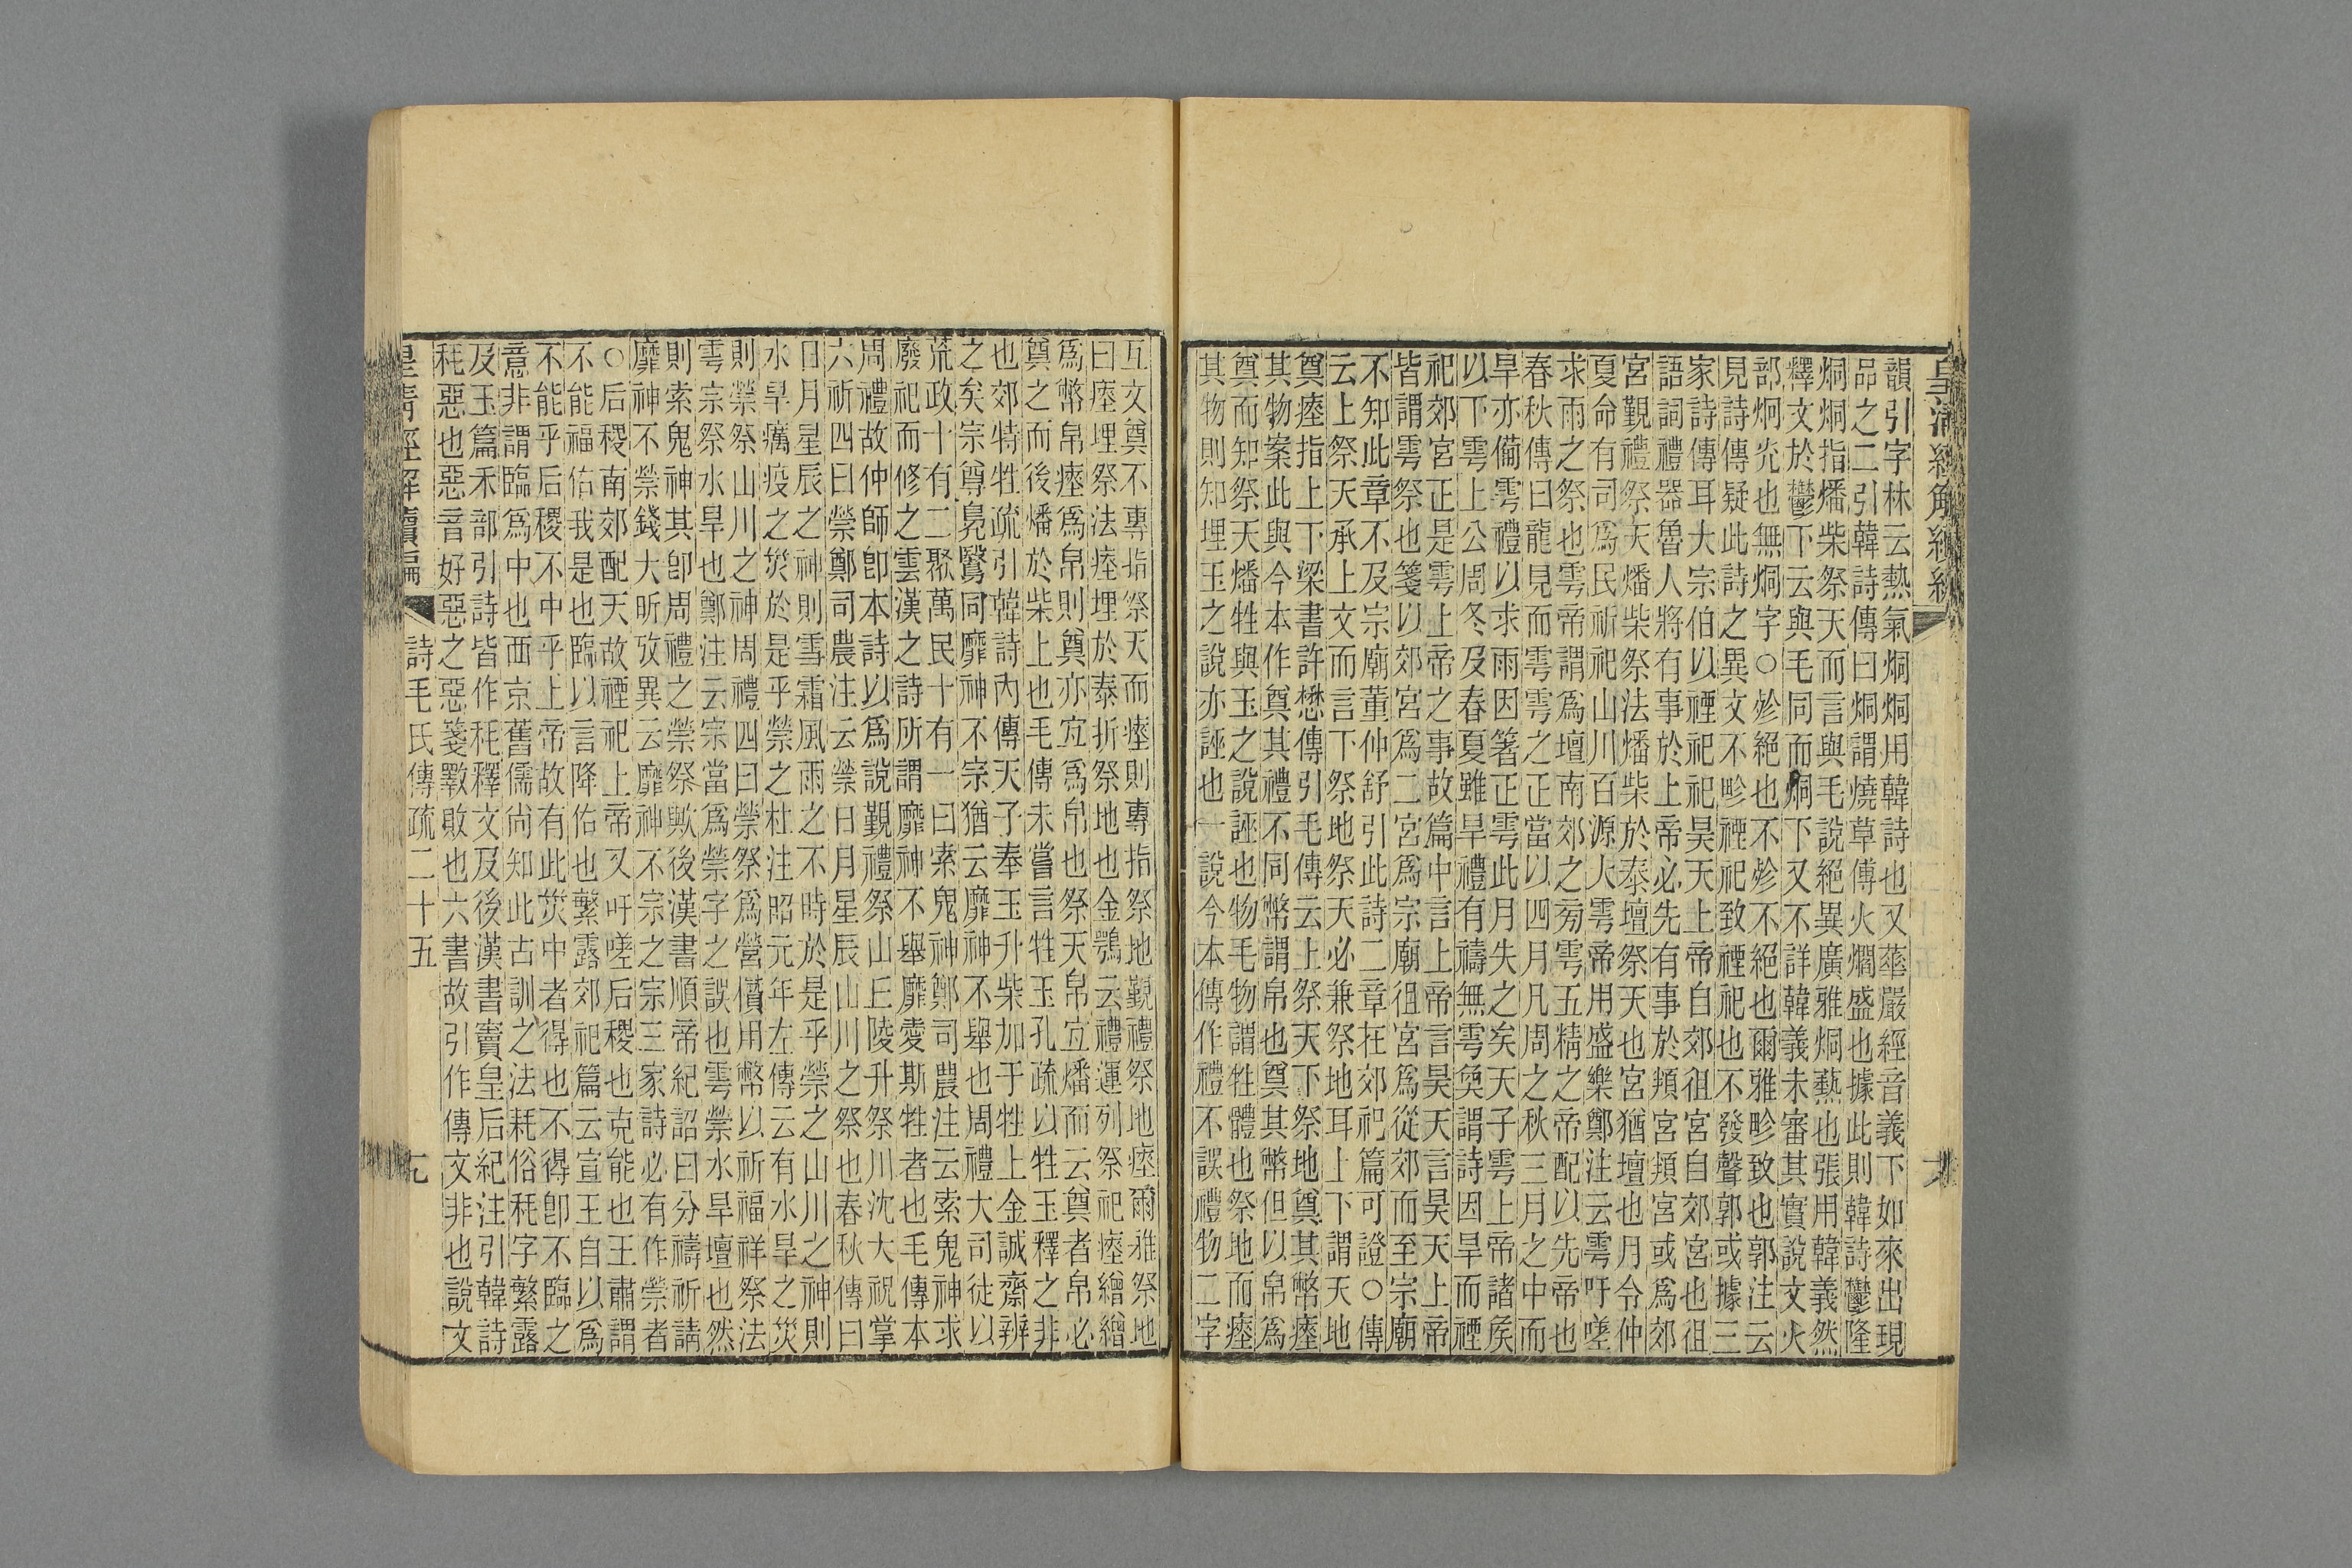 皇清經解續編
韻引字林云熱氣烔烔用韓詩也又華嚴經音義下如來出現
品之二引韓詩傳曰烔謂燒草傅火爓盛也據此則韓詩鬱隆
烔烔指燔柴祭天而言與毛說絕異廣雅烔爇也張用韓義然
釋文於鬱下云與毛同而烔下又不詳韓義未審其實說文火
部炯光也無烔字○殄絕也不殄不絕也爾雅畛致也郭注云
見詩傳疑此詩之異文不畛禋祀致禋祀也不發聲郭或據三
家詩傳耳大宗伯以禋祀祀昊天上帝自郊徂宮自郊宮也徂
語詞禮器魯人將有事於上帝必先有事於頖宮頖宮或爲郊
宮覲禮祭天燔柴祭法燔柴於泰壇祭天也宮猶壇也月令仲
夏命有司爲民祈祀山川百源大雩帝用盛樂鄭注云雩吁嗟
求雨之祭也雩帝謂爲壇南郊之旁雩五精之帝配以先帝也
春秋傳曰龍見而雩雩之正當以四月凡周之秋三月之中而
旱亦僃雩禮以求雨因箸正雩此月失之矣天子雩上帝諸矦
以下雩上公周冬及春夏雖旱禮有禱無雩奐謂詩因旱而禋
祀郊宮正是雩上帝之事故篇中言上帝言昊天言昊天上帝
皆謂雩祭也箋以郊宮爲二宮爲宗廟徂宮爲從郊而至宗廟
不知此章不及宗廟董仲舒引此詩二章在郊祀篇可證○傳
云上祭天承上文而言下祭地祭天必兼祭地耳上下謂天地
奠瘞指上下梁書許懋傳引毛傳云上祭天下祭地奠其幣瘞
其物案此與今本作奠其禮不同幣謂帛也奠其幣但以帛爲
奠而知祭天燔牲與玉之說誣也物毛物謂牲體也祭地而瘞
其物則知埋玉之說亦誣也一說今本傳作禮不誤禮物二字
互文奠不專指祭天而瘞則專指祭地覲禮祭地瘞爾雅祭地
曰瘞埋祭法瘞埋於泰折祭地也金鶚云禮運列祭祀瘞繒繒
爲幣帛瘞爲帛則奠亦宐爲帛也祭天帛宐燔而云奠者帛必
奠之而後燔於柴上也毛傳未嘗言牲玉孔疏以牲玉釋之非
也郊特牲疏引韓詩內傳天子奉玉升柴加于牲上金誠齋辨
之矣宗尊鳧鷖同靡神不宗猶云靡神不舉也周禮大司徒以
荒政十有二聚萬民十有一曰索鬼神鄭司農注云索鬼神求
廢祀而修之雲漢之詩所謂靡神不舉靡愛斯牲者也毛傳本
周禮故仲師卽本詩以爲說覲禮祭山丘陵升祭川沈大祝掌
六祈四曰禜鄭司農注云禜日月星辰山川之祭也春秋傳曰
日月星辰之神則雪霜風雨之不時於是乎禜之山川之神則
水旱癘疫之災於是乎禜之杜注昭元年左傳云有水旱之災
則禜祭山川之神周禮四曰禜祭爲營儹用幣以祈福祥祭法
雩宗祭水旱也鄭注云宗當爲禜字之誤也雩禜水旱壇也然
則索鬼神其卽周禮之禜祭歟後漢書順帝紀詔曰分禱祈請
靡神不禜錢大昕攷異云靡神不宗之宗三家詩必有作禜者
○后稷南郊配天故禋祀上帝又吁嗟后稷也克能也王肅謂
不能福佑我是也臨以言降佑也繁露郊祀篇云宣王自以爲
不能乎后稷不中乎上帝故有此災中者得也不得卽不臨之
意非謂臨爲中也西京舊儒尙知此古訓之法耗俗秏字繁露
及玉篇禾部引詩皆作秏釋文及後漢書竇皇后紀注引韓詩
秏惡也惡音好惡之惡箋斁敗也六書故引作傳文非也說文
皇清經解續編
詩毛氏傳疏二十五